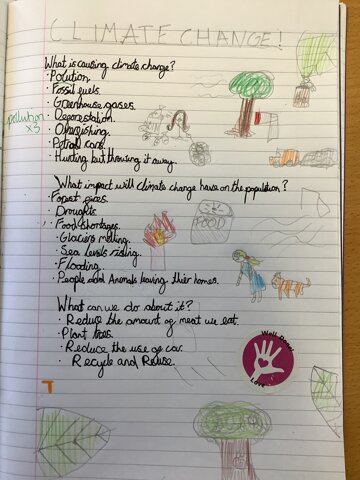 CLIMATE CHANGE!
What is causing climate change?
· Polution.
· Fossil fuels.
· Greenhouse gases.
pollution
x3
· Deforestation.
· Overfishing.
· Petrol cars.
· Hunting but throwing it away.
What impact will climate change have on the population?
· Forest fires.
· Droughts.
· Food shortages.
FOOD
· Glaciers melting.
· Sea levels rising.
· Flooding.
· People and Animals leaving their homes.
What can we do about it?
· Reduce the amount of meat we eat.
· Plant trees.
· Reduce the use of car.
· Recycle and Reuse.
Well Done!
T